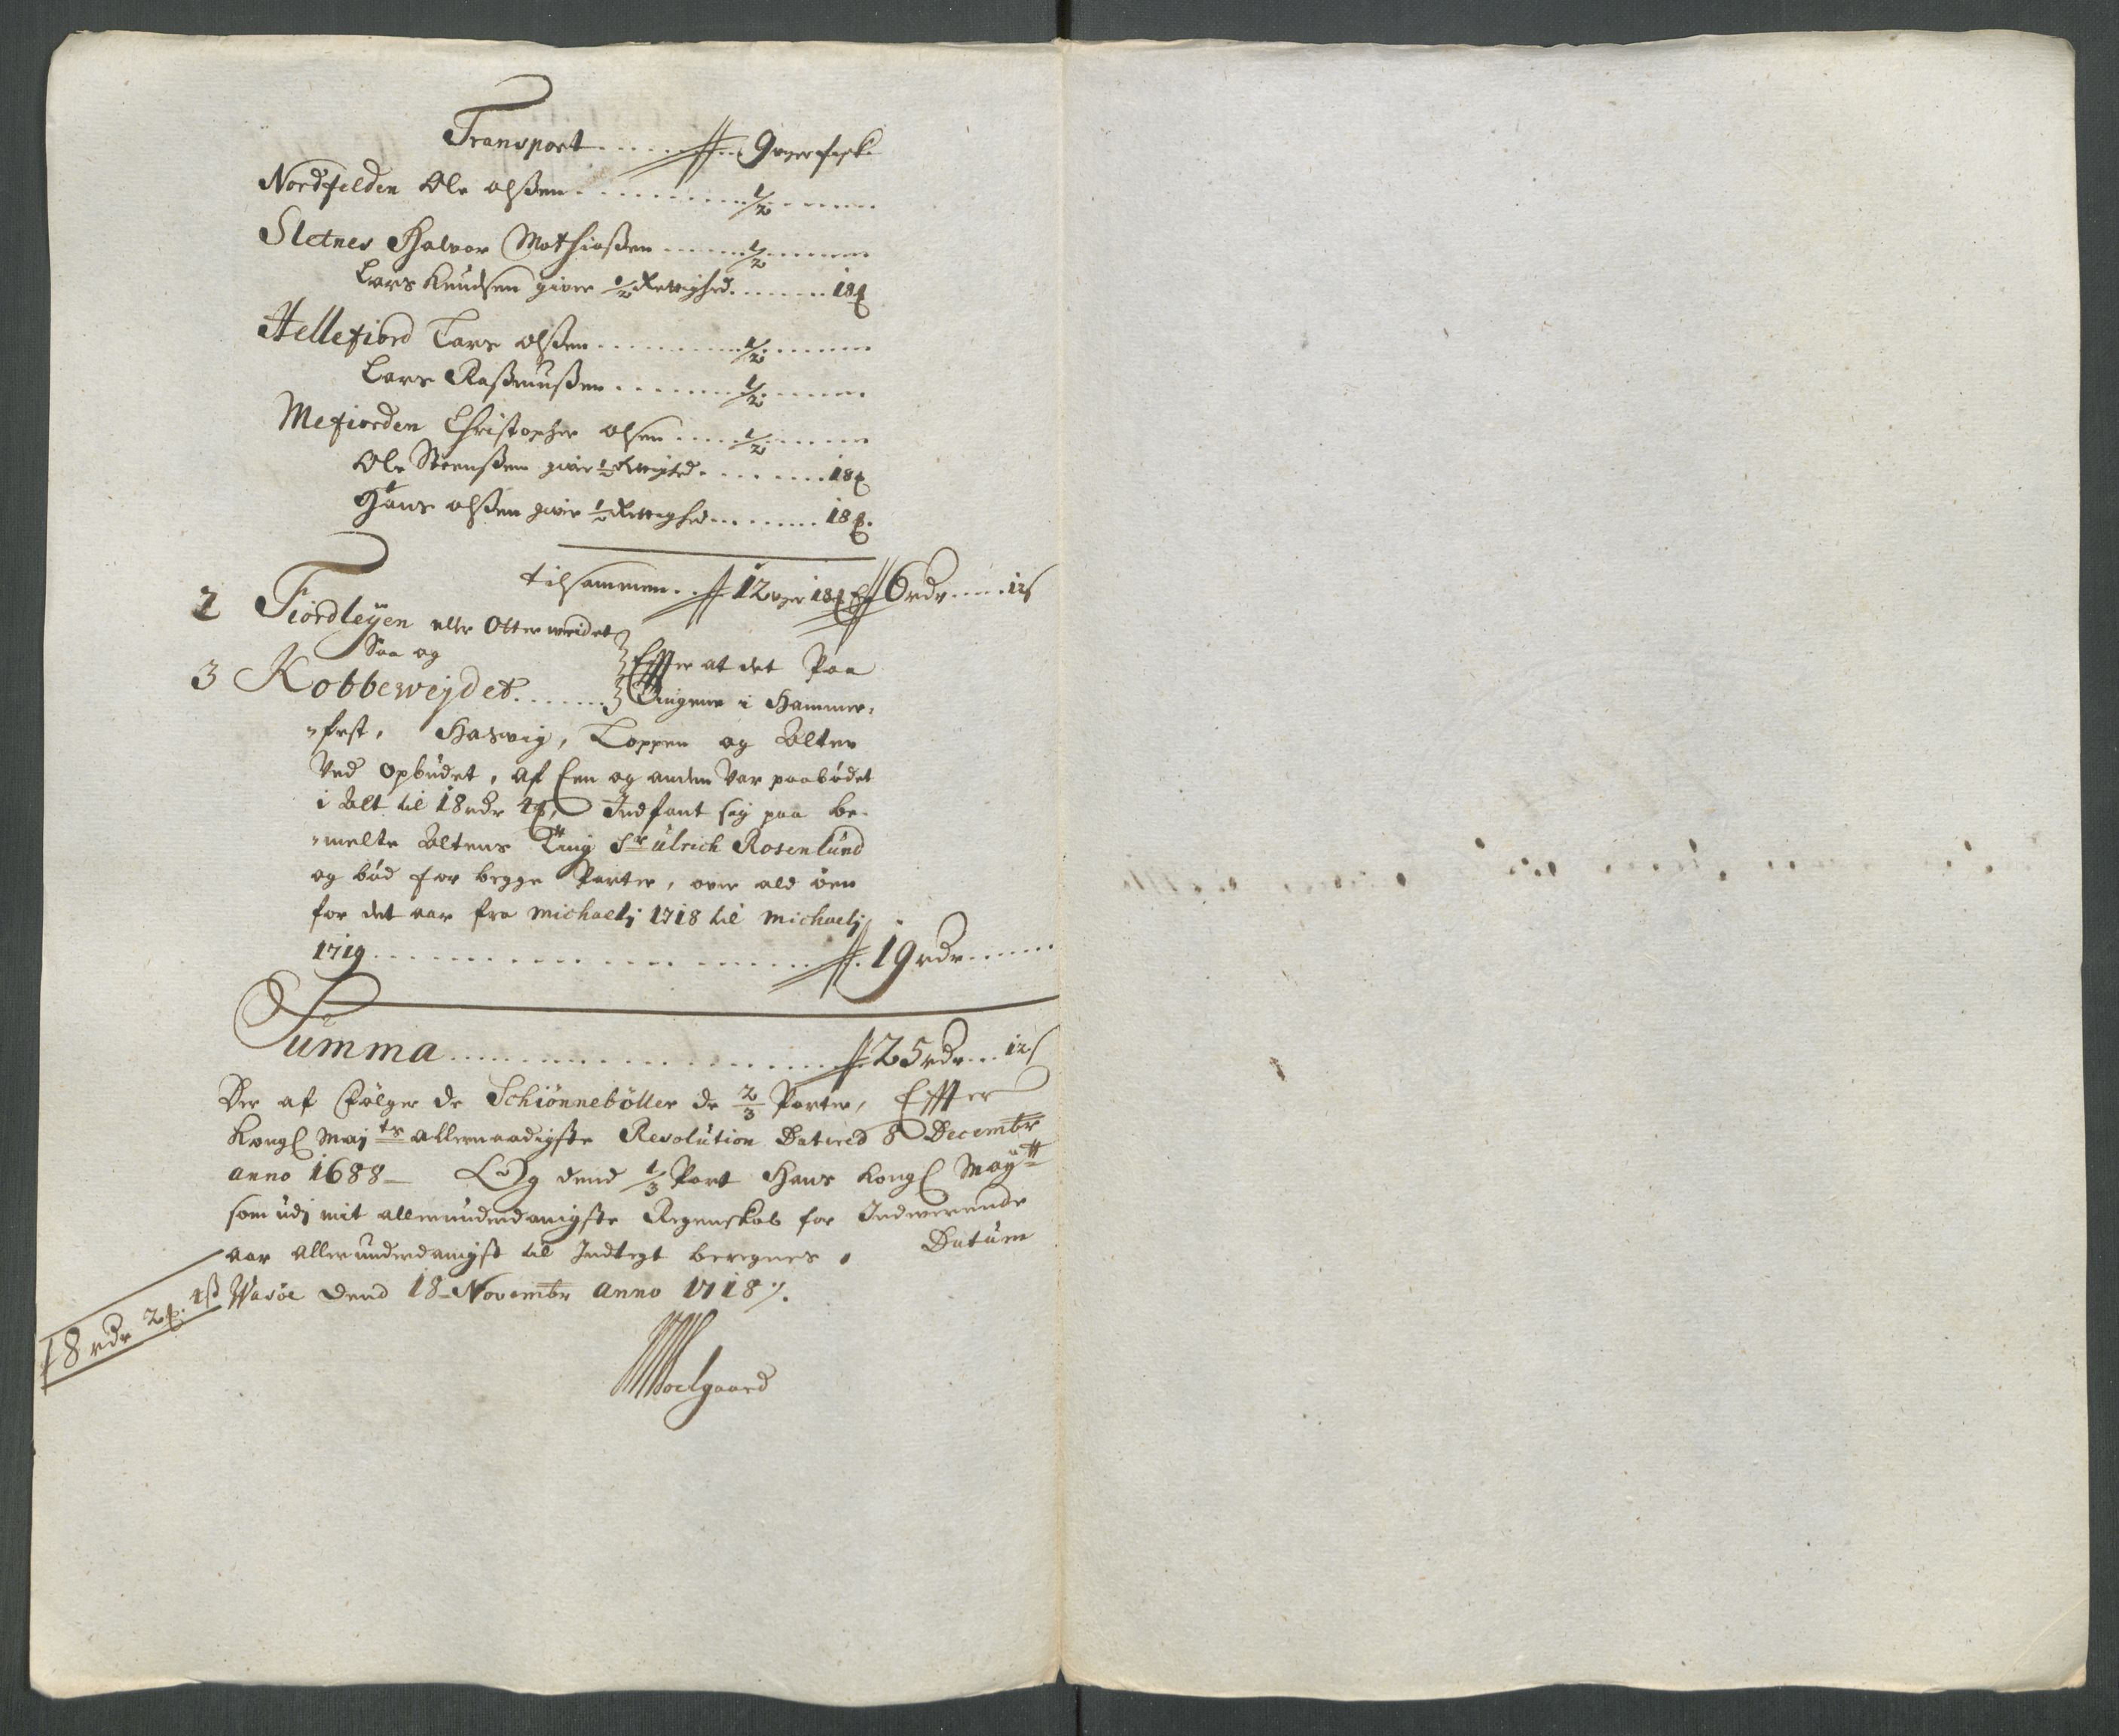 Transport ...... 9 woger fisk
Nordfielden Ole olßen ......... 1/2 ......
Sletnes Halvor Mathiaßen ...... 1/2 ......
Lars Knudsen giver 1/2 Rettighed ...... 18 ₶
Hellefiord Lars olßen ......... 1/2 ......
Lars Raßmußen ....... 1/2 ......
Mefiorden Christopher olsen ..... 1/2 ......
Ole Steenßen giver 1/2 Rettighed ....... 18 ₶
Hans olßen giver 1/2 Rettighed ....... 18 ₶.
tilsammen .. 12 wger 18 ₶ Er 6 rdr ..... 12 s
2 Fiordleÿen eller Otterweidet
Saa og
3 Kobbeweÿdet ....... Effter at det Paa
Tingene i Hammer,
„fest, Hasvig, Loppen og Alten
Ved Opbudet, af Een og anden Var paabødet
i Alt til 18 rdr 4 ₶, Indfant sig paa be-
„melte Altens Ting Sr Ulrich Rosenlund
og bød for begge Parter, over ald öen
for det aar fra Michaelj 1718 til Michaelj
1719 ............ 19 rdr ......
Summa ............ 25 rdr ... 12 s
Der af Følger de Schiønnebøller de 2/3 Parter, Effter
Kongl Majts allernaadigste Resolution Datered 8 Decembr
anno 1688 – Og dend 1/3 Part Hans Kongl Maÿtt
som udj mit allerunderdanigste Regenskab for Indwerende
aar allerunderdanigst til Indtegt beregnes. Datum
Wasöe dend 18 Novembr anno 1718 ⁒.
18 rdr 2 ₶. 4 ß
Wedelgaard